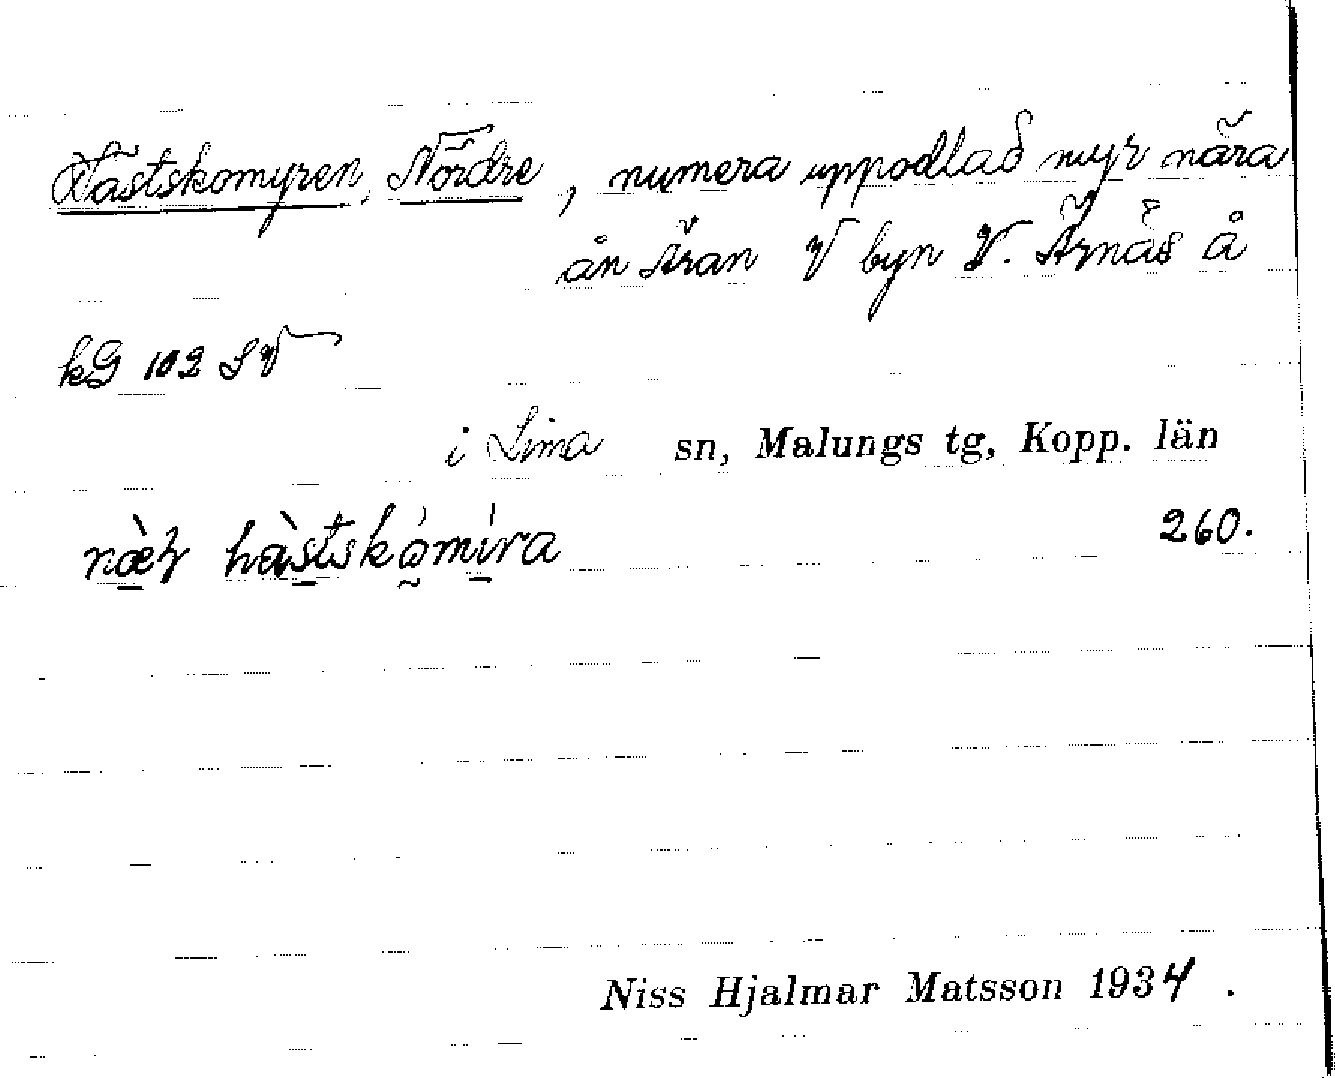 Hästskomyren, Nördre, numera uppodlad myr nära
ån Äran V byn V. Ärnäs å
kG 102 SV
i Lima sn, Malungs tg, Kopp. län
260.
Niss Hjalmar Matsson 1934.